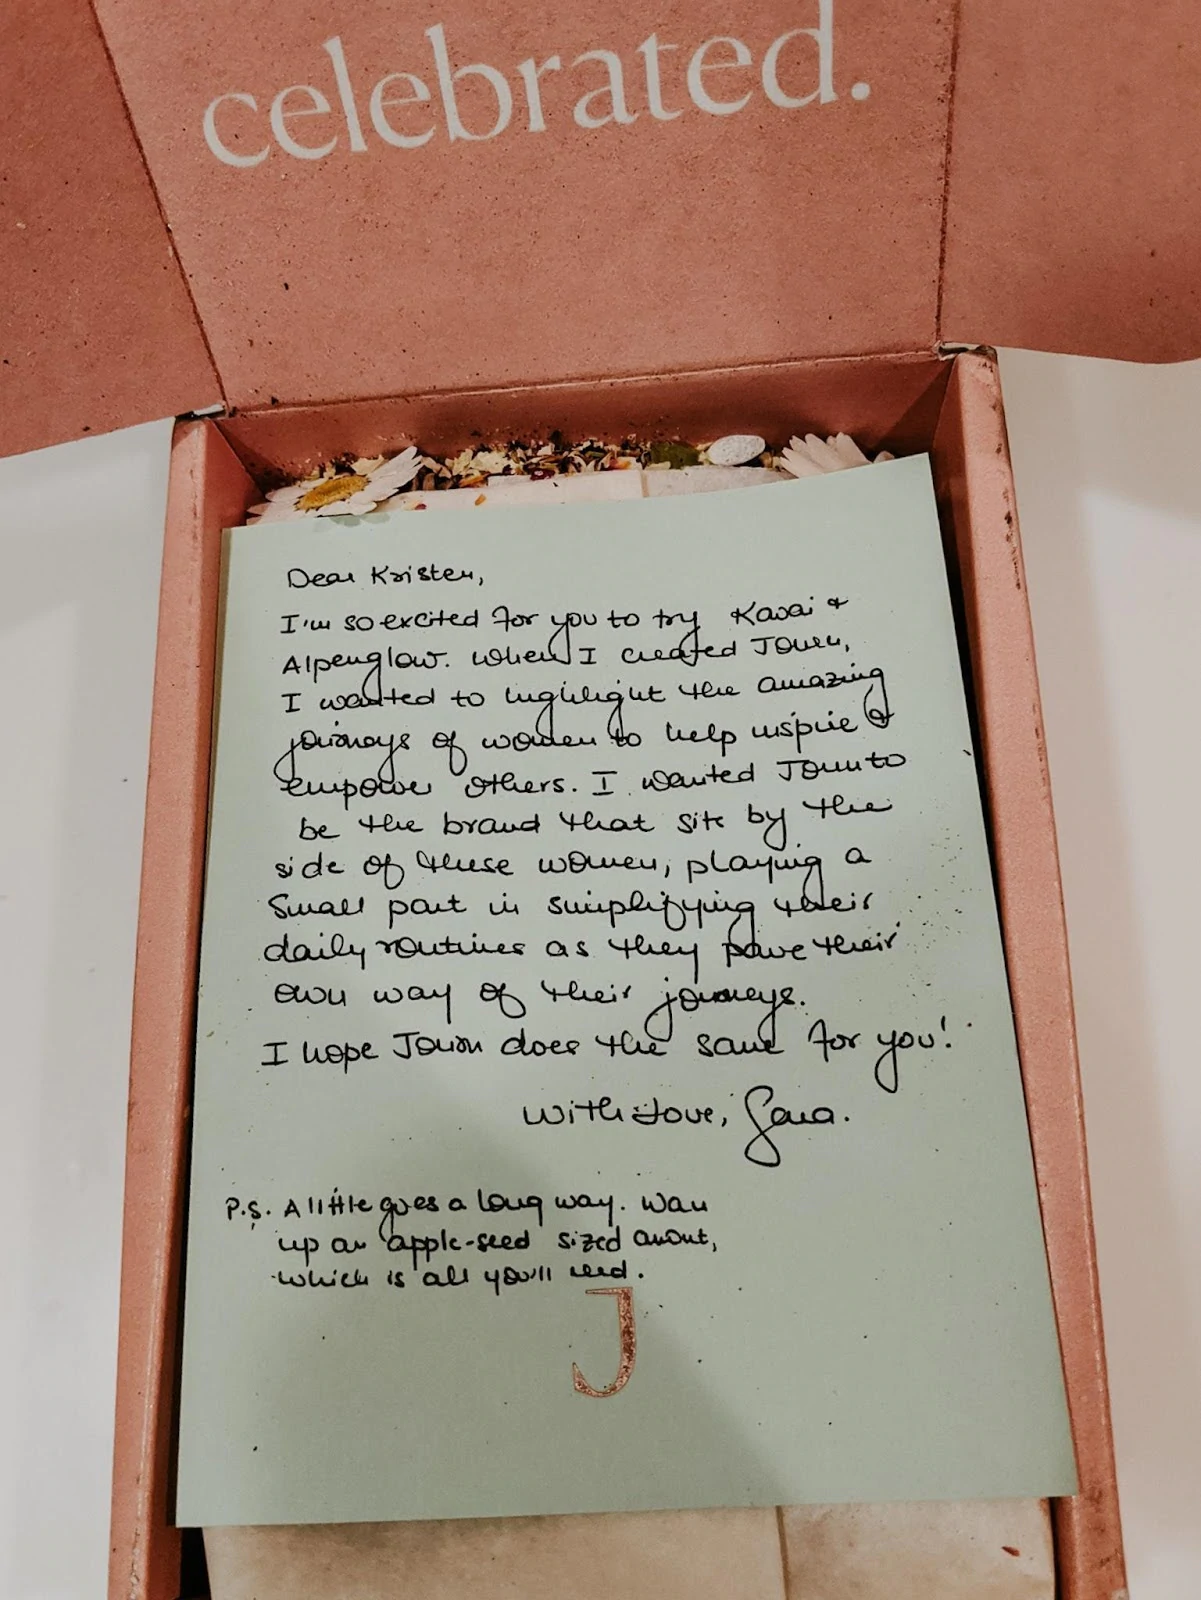 celebrated.
Dear Kristen,
I'm so excited for you to try Kavai &
Alpenglow. When I created Journ,
I wanted to highlight the amazing
journeys of women to help inspire &
empower others. I wanted Journ to
be the brand that sits by the
side of these women, playing a
small part in simplifying their
daily routines as they pave their
own way of their journeys.
I hope Journ does the same for you!
With Love, Sara.
P.S. A little goes a long way. Warm
up an apple-seed sized amount,
which is all you'll need.
J